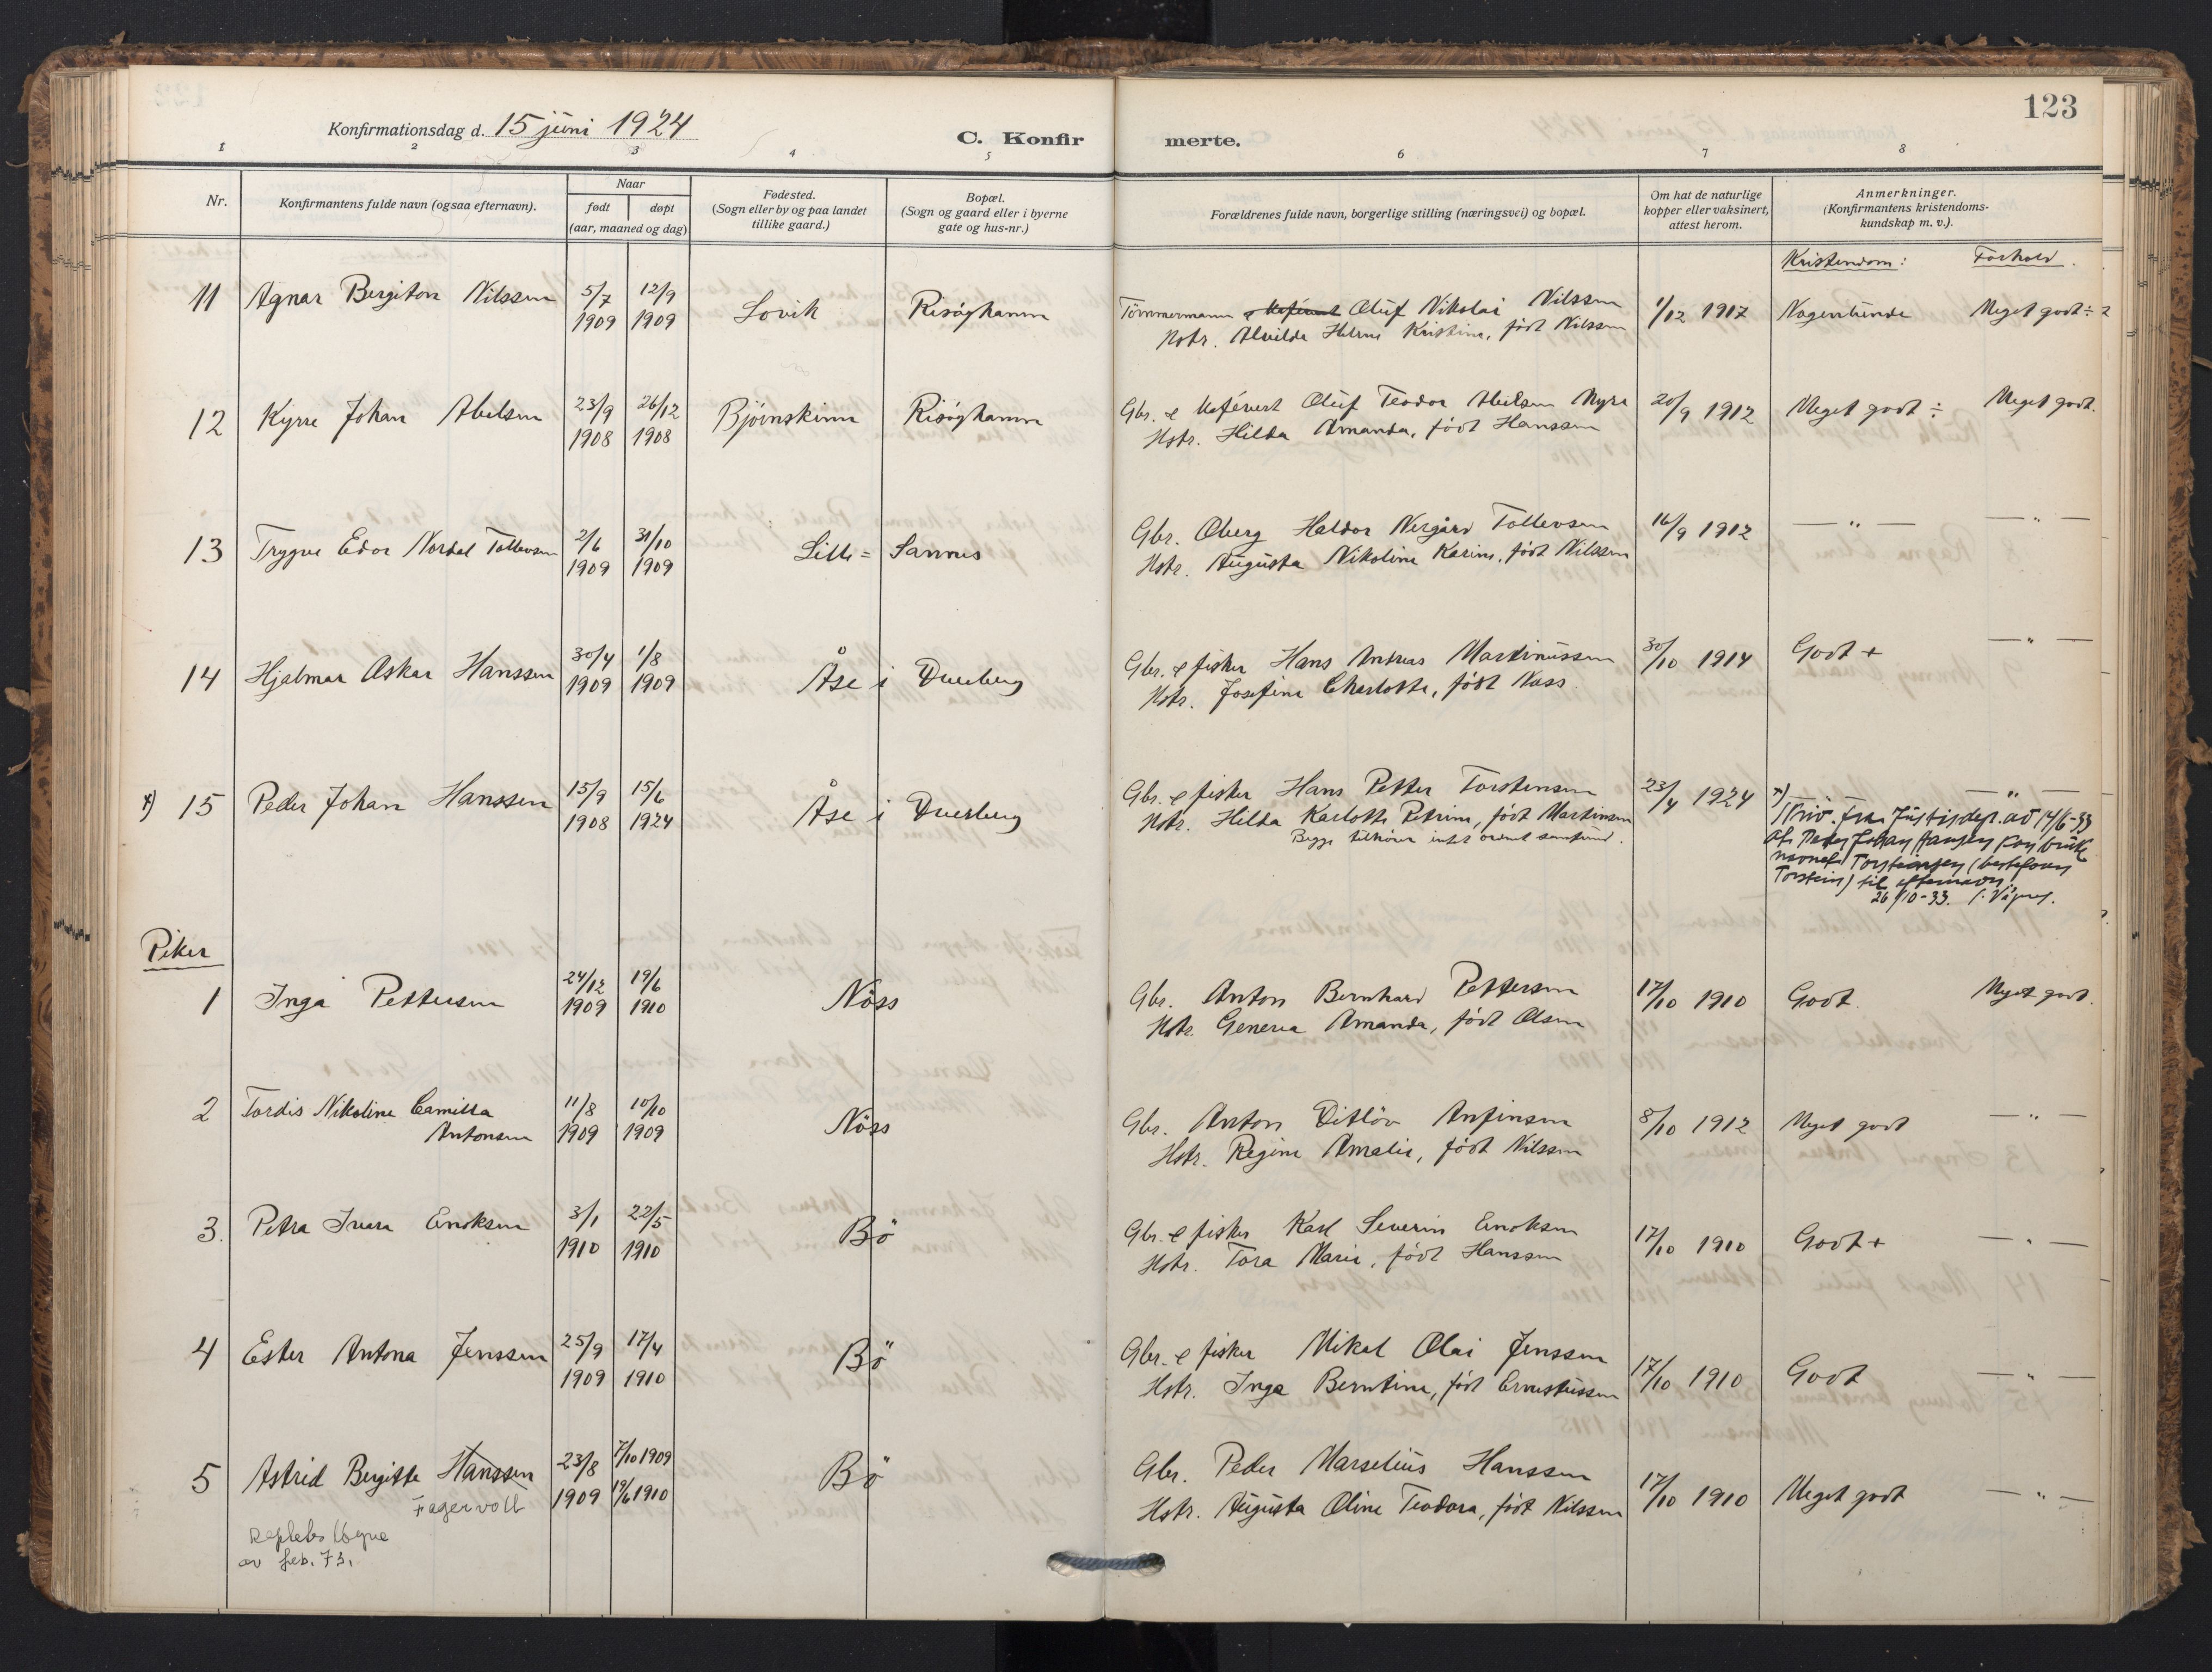 123
Konfirmationsdag d. 15 juni 1924
C. Konfir merte.
1 2 3 4 5 6 7 8
Nr.
Konfirmantens fulde navn (ogsaa efternavn).
Naar
født døpt
(aar, maaned og dag)
Fødested.
(Sogn eller by og paa landet
tillike gaard.)
Bopæl.
(Sogn og gaard eller i byerne
gate og hus-nr.)
Forældrenes fulde navn, borgerlige stilling (næringsvei) og bopæl.
Om hat de naturlige
kopper eller vaksinert,
attest herom.
Anmerkninger.
(Konfirmantens kristendoms-
kundskap m. v.).
Kristendom: Forhold.
11 Agnar Bergiton Nilssen 5/7 1909 12/9 1909 Lovik Risöyhamn
Tömmermann Oluf Nikolai Nilssen 1/12 1917 Nogenlunde Meget godt ÷
Hstr. Alvilda Helene Kristine, född Nilssen
12 Kyrre Johan Abelsen 23/9 1908 26/12 1908 Bjönskinn Risöyhamn
Gbr. & Oluf Teodor Abelsen Myre 20/9 1912 Meget godt ÷ Meget godt.
Hstr. Hilda Amanda, född Hanssen
13 Trygve Edor Nordal Tollevsen 2/6 1909 31/10 1909 Lille = Sannes
Gbr. Oberg Haldor Nergård Tollevsen 16/9 1912 — " — — " —
Hstr. Augusta Nikoline Karine, född Nilssen
14 Hjalmar Oskar Hanssen 30/4 1909 1/8 1909 Åse i Dverberg
Gbr. & fisker Hans Andreas Martinussen 30/10 1914 Godt + — " —
Hstr. Josefine Charlotte, född Nass
x) 15 Peder Johan Hanssen 15/9 1908 15/6 1924 Åse i Dverberg
Gbr. & fisker Hans Petter Torstensen 23/4 1924 — " —
Hstr. Hilda Karlotte Petrine, född Martinsen
Begge tilhører intet ordnet samfund.
x) Skriv. fra Justisdep. av 14/6-33
at Peder Johan Hansen kan bruke
navnet Torsteinsen (bestefaren
Torstein) til efternavn.
26/10-33.
Piker
1 Inga Pettersen 24/12 1909 19/6 1910 Nöss
Gbr. Anton Bernhard Pettersen 17/10 1910 Godt. Meget godt.
Hstr. Generia Amanda, född Olsen
2 Tordis Nikoline Camilla
Antonsen 11/8 1909 10/10 1909 Nöss
Gbr. Anton Ditlöv Anfinsen 8/10 1912 Meget godt — " —
Hstr. Regine Amalie, född Nilssen
3. Petra Ivara Enoksen 3/1 1910 22/5 1910 Bö
Gbr. & fisker Karl Severin Enoksen 17/10 1910 Godt + — " —
Hstr. Tora Marie, född Hanssen
4 Ester Antona Jenssen 25/9 1909 17/4 1910 Bö
Gbr. & fisker Mikal Olai Jenssen 17/10 1910 Godt — " —
Hstr. Inga Berntine, född Ernestussen
5 Astrid Bergitte Hanssen 23/8 1909 7/10 1909 19/6 1910 Bö
Fagervolt
av feb. 73.
Gbr. Peder Marselius Hanssen 17/10 1910 Meget godt — " —
Hstr. Augusta Oline Teodora, född Nilssen